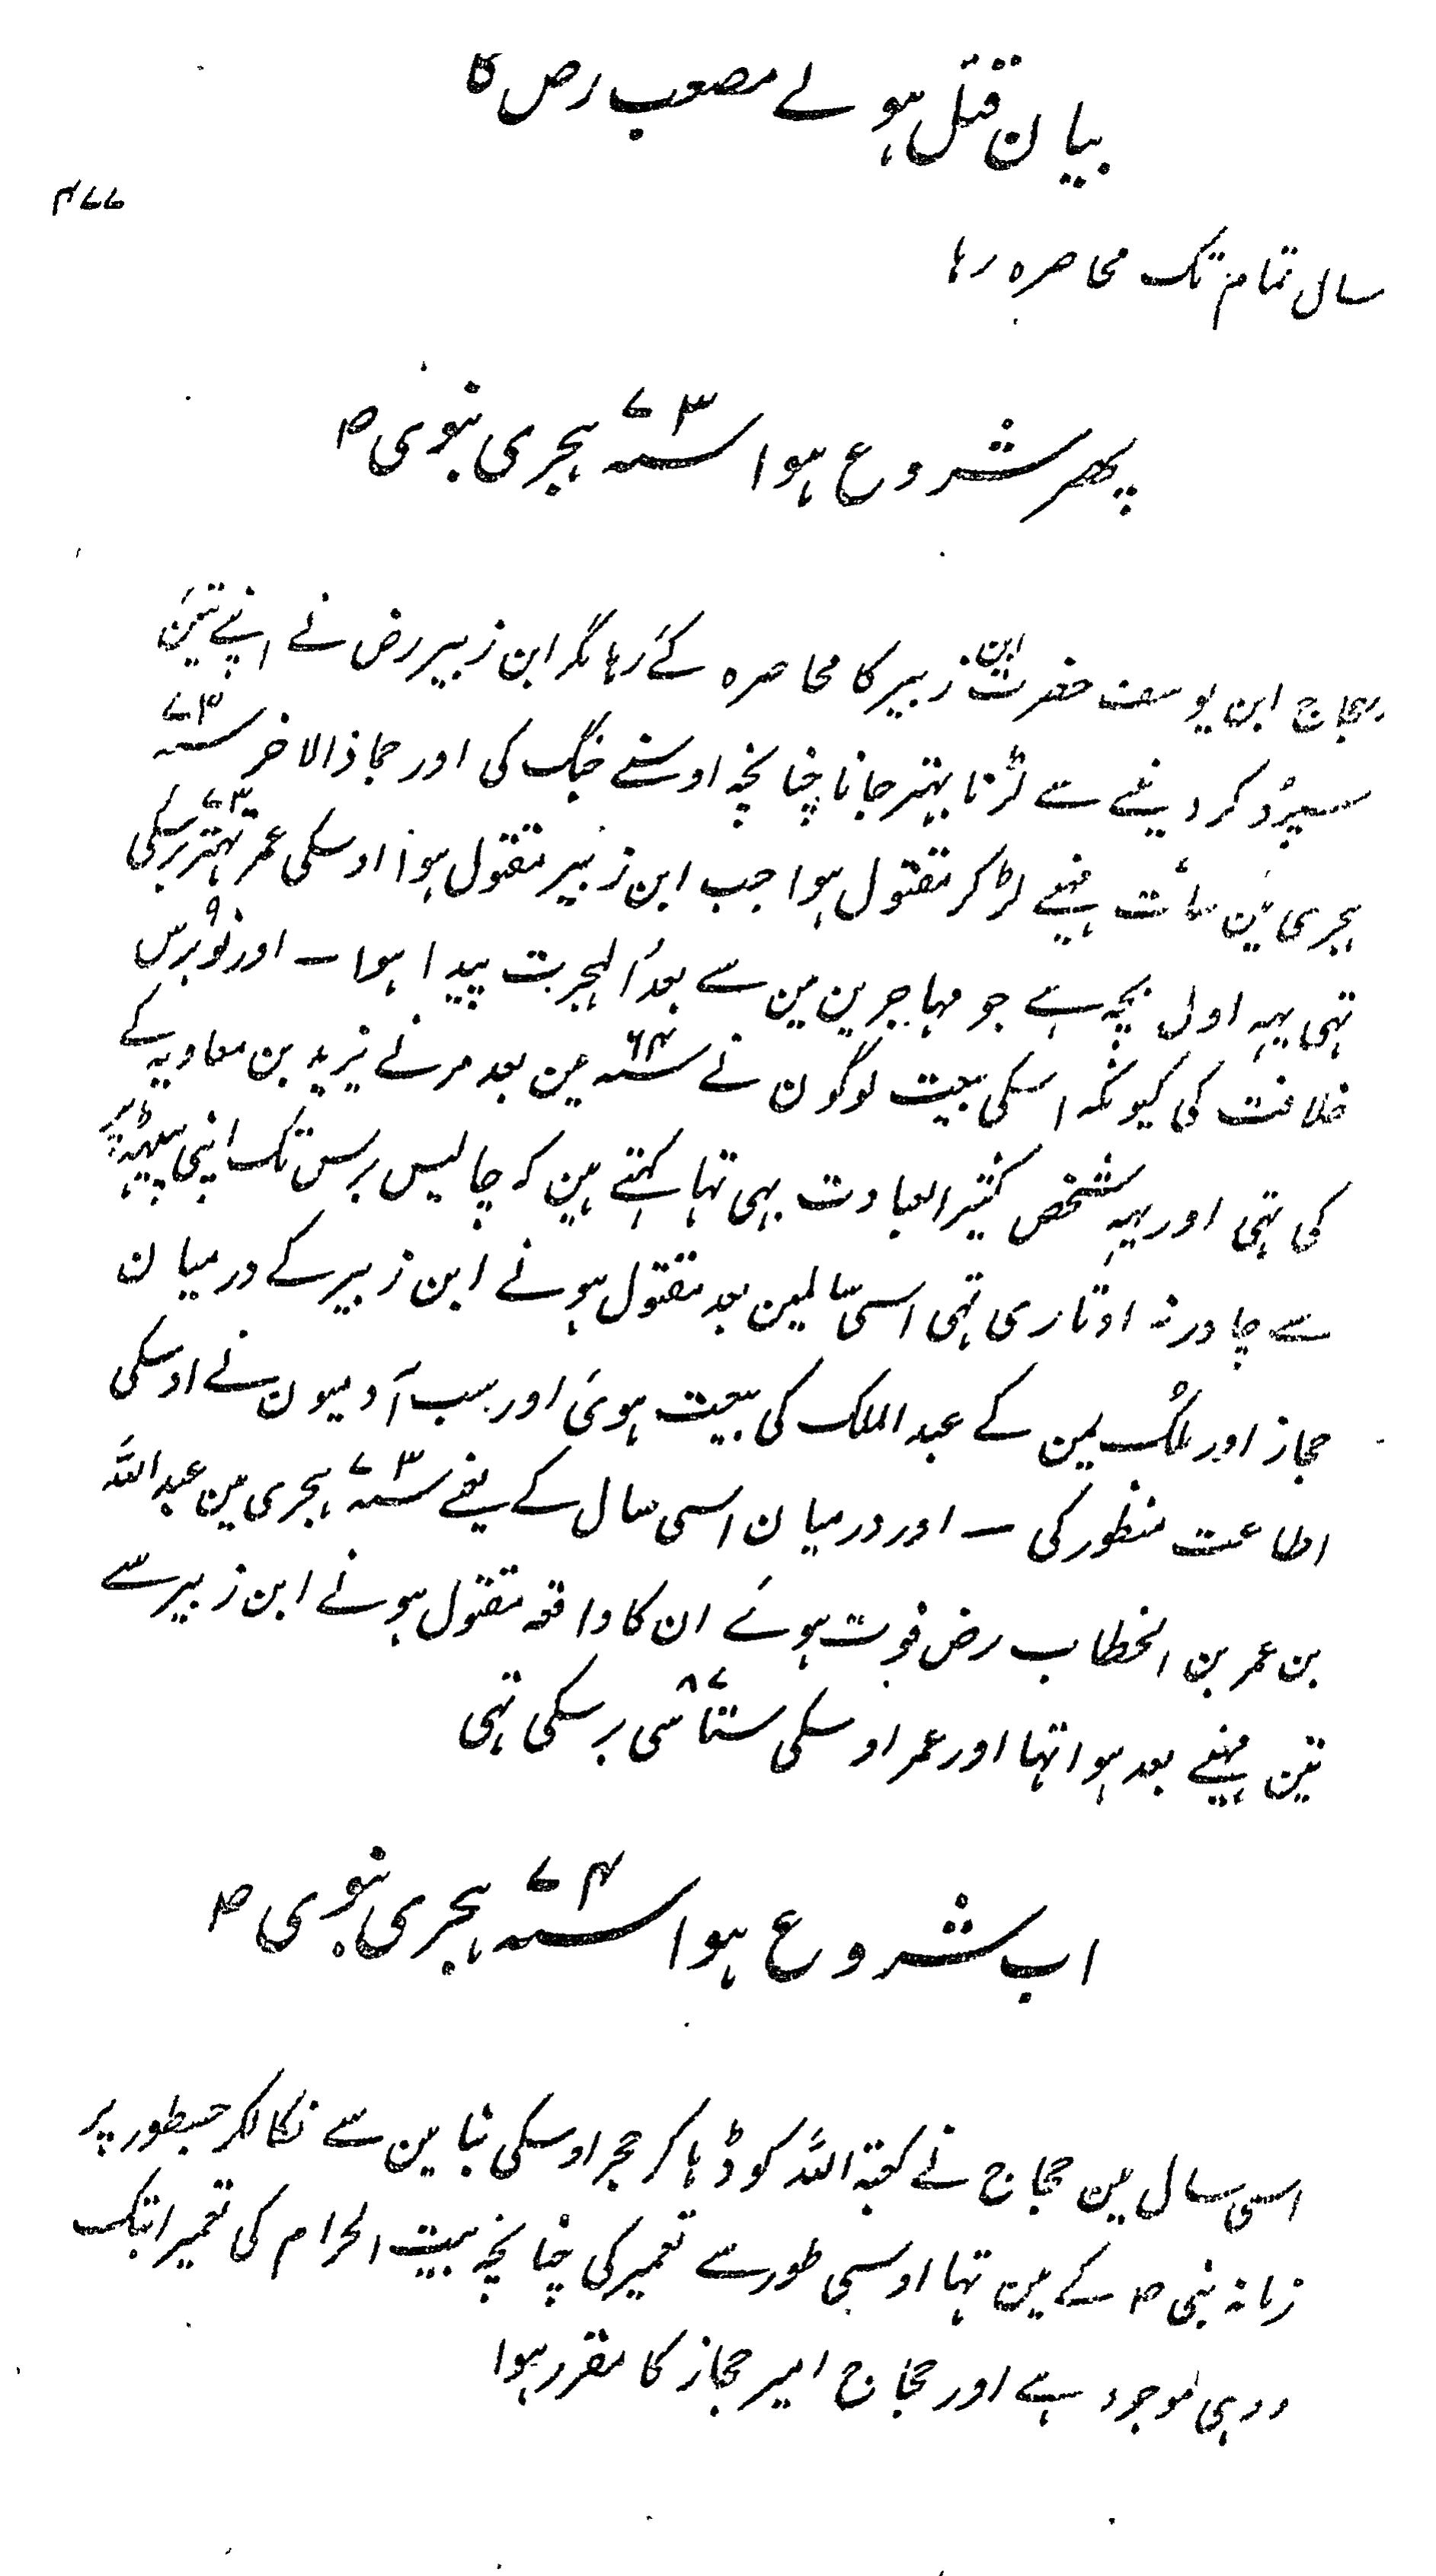 بیان قتل ہونے مصعب رض کا
۴۷۷
سال تمام تک محاصرہ رہا
پھر شروع ہوا سنہ ۷۳ ہجری نبوی ص
حجاج ابن یوسف حضرت ابن زبیر کا محاصرہ کئے رہا مگر ابن زبیر رض نے اپنے تئین
سپرد کر دینے سے لڑنا بہتر جانا چنانچہ اوسنے جنگ کی اور جماذالاخر سنہ ۷۳
ہجری مین سات مہینے لڑ کر مقتول ہوا جب ابن زبیر مقتول ہوا اوسکی عمر تہتر ۷۳ برسکی
تہی یہہ اول بچہ ہے جو مہاجرین مین سے بعد الہجرت پیدا ہوا ۔ اور نو ۹ برس
خلافت کی کیونکہ اسکی بیعت لوگون نے سنہ ۶۴ مین بعد مرنے یزید بن معاویہ کے
کی تہی اور یہہ شخص کثیر العبادت بہی تہا کہتے ہین کہ چالیس برس تک اپنی پیٹہہ پر
سے چادر نہ اوتاری تہی اسی سالمین بعد مقتول ہونے ابن زبیر کے درمیان
حجاز اور ملک یمن کے عبد الملک کی بیعت ہوئی اور سب آدمیون نے اوسکی
اطاعت منظور کی ۔ اور درمیان اسی سال کے یعنے سنہ ۷۳ ہجری مین عبد اللہ
بن عمر بن الخطاب رض فوت ہوئے ان کا واقعہ مقتول ہونے ابن زبیر سے
تین مہینے بعد ہوا تہا اور عمر اوسکی ستاسی ۸۷ برسکی تہی
اب شروع ہوا سنہ ۷۴ ہجری نبوی ص
اسی سال مین حجاج نے کعبۃ اللہ کو ڈہا کر حجر اوسکی بنا مین سے نکالکر جسطور پر
زمانہ نبی ص کے مین تہا اوسی طور سے تعمیر کی چنانچہ بیت الحرام کی تعمیر ابتک
ووہی موجود ہے اور حجاج امیر حجاز کا مقرر ہوا